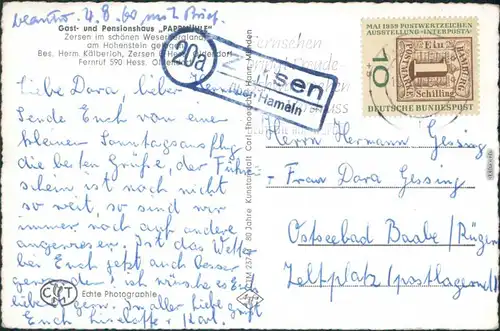 beantw. 4.8.60 mit Brief.
Gast- und Pensionshaus „PAPPMÜHLE"
Zersen im schönen Weserbergland
am Hohenstein gelegen
Bes. Herm. Kälberich, Zersen ü. Hess. Oldendorf
Fernruf 590 Hess. Oldendorf
Liebe Dora, lieber Hermann
Sende Euch von einer
kleinen Sonntagsausflug
die besten Grüße, der Führer-
schein ist noch nicht
so weit, so sind wir
immer noch auf andere
angewiesen. Ist das Wetter
bei Euch jetzt auch besser
geworden! ich wünsche es Euch
gern. In aller Liebe grüßt
Euch Lieselotte + Karl.
CTM
Echte Photographie
CTM 2374
80 Jahre Kunstanstalt Carl Thoericht, Hann. Münden
20a
über Hameln
Fernsehen
MAI 1959 POSTWERTZEICHEN
AUSSTELLUNG·INTERPOSTA·
10
HAMBURG
Ein
1
Schilling
POSTMARKE
DEUTSCHE BUNDESPOST
Herrn Hermann Gessing
Frau Dora Gessing
Ostseebad Baabe/Rügen
Zeltplatz/postlagernd